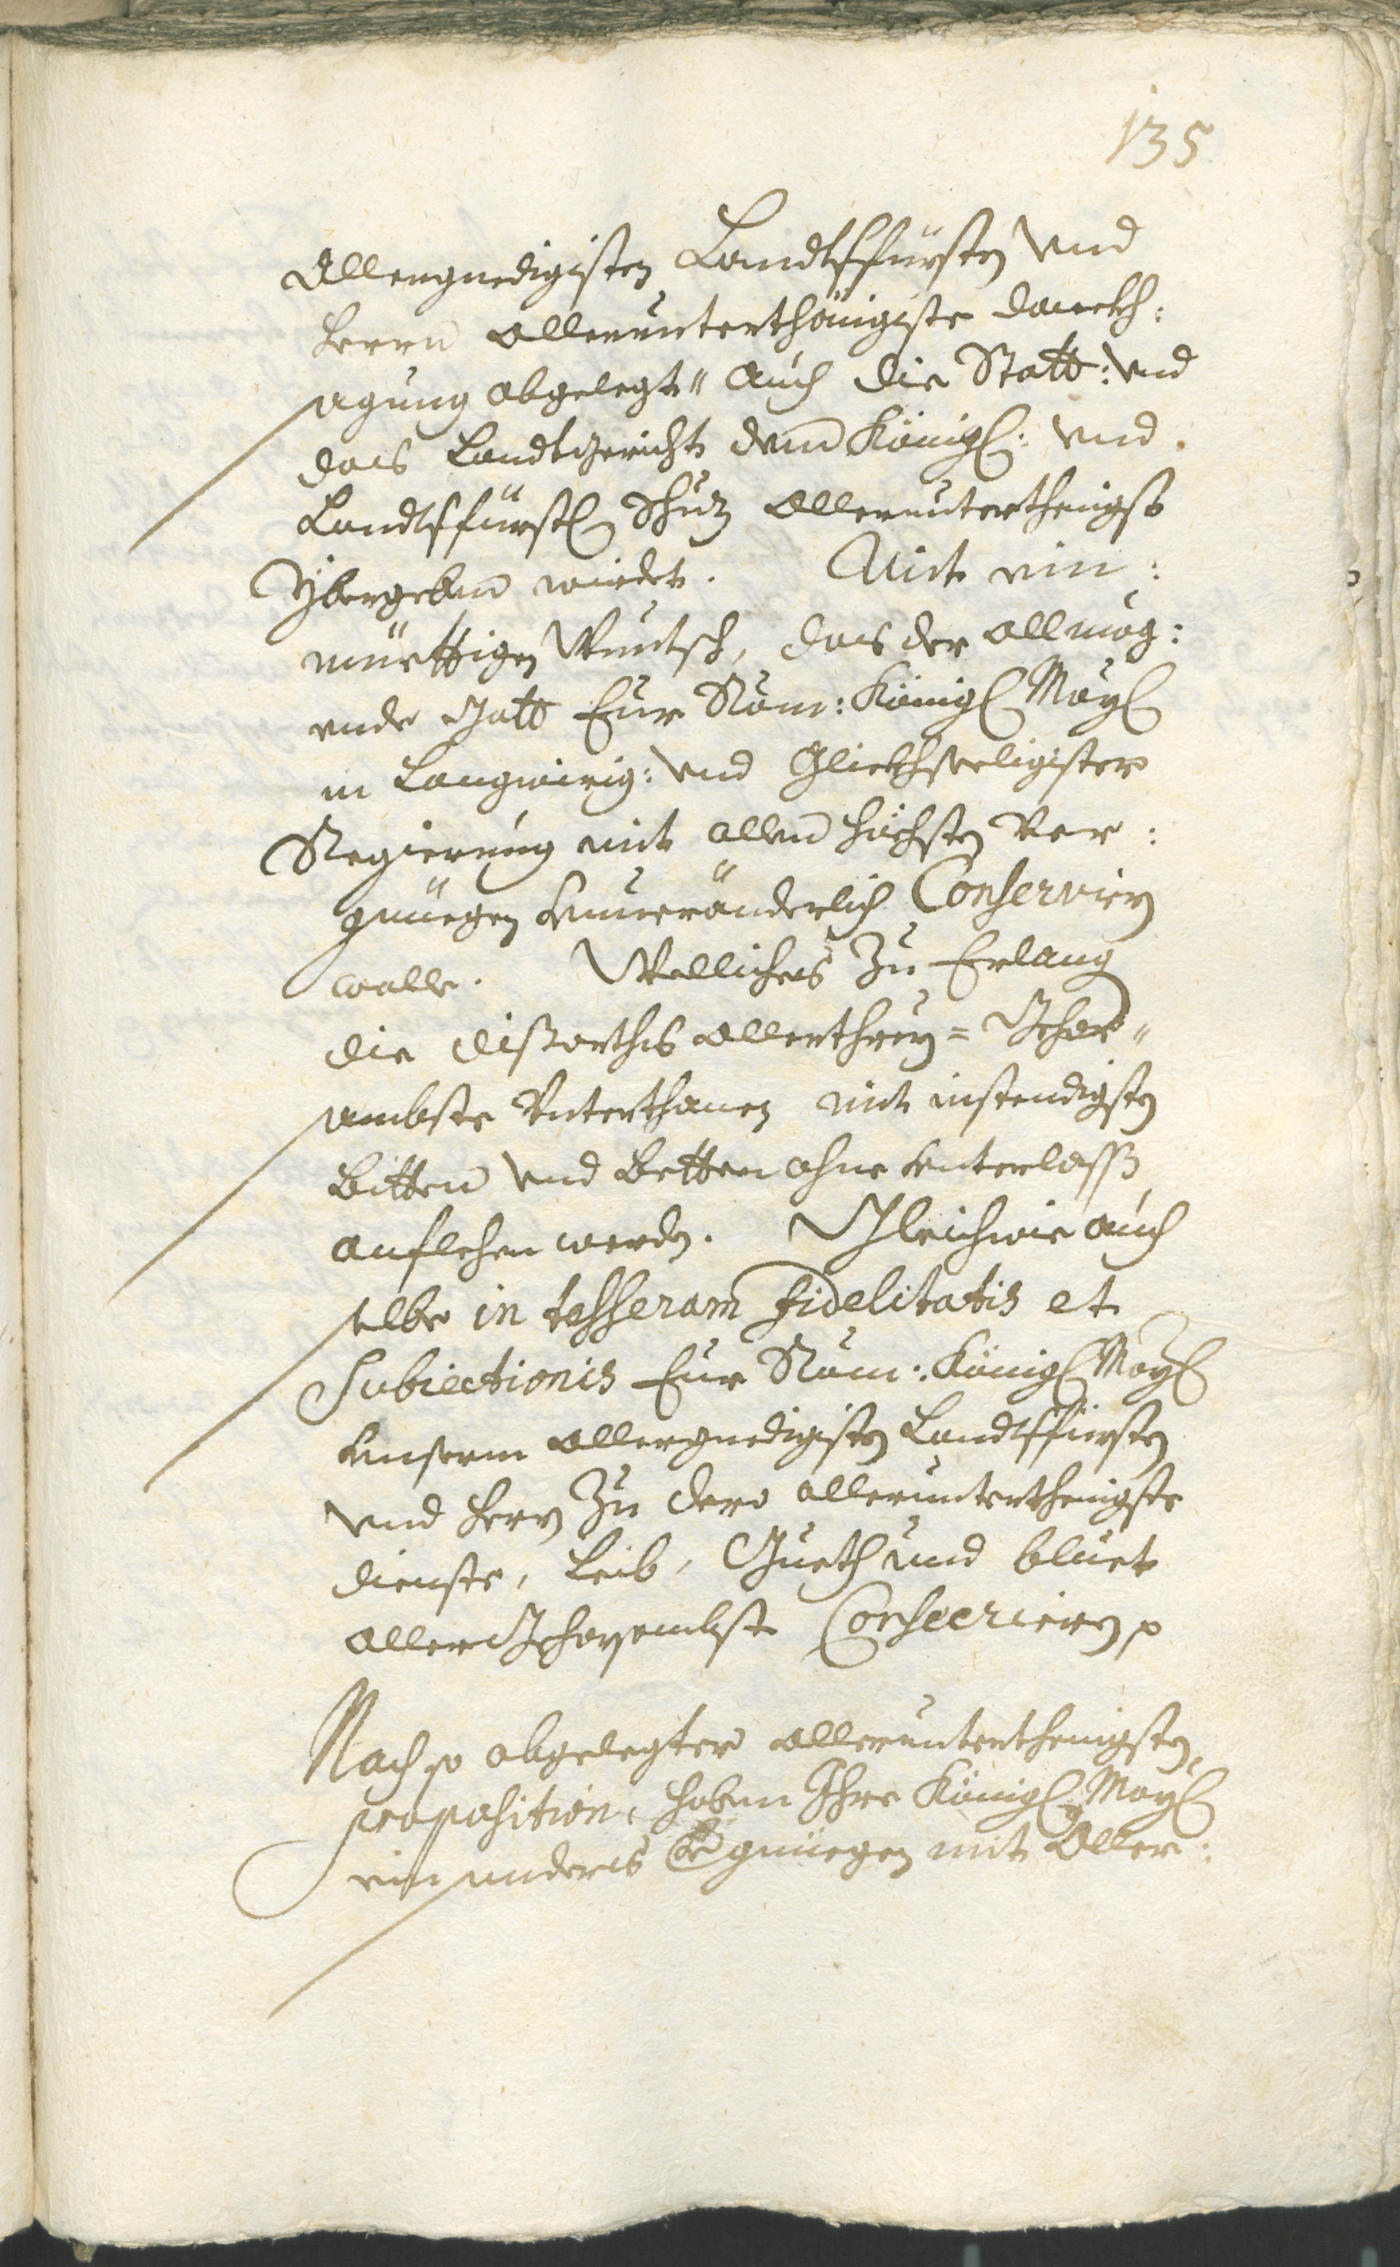 135
Allergnedigisten Landtsfürsten Vnd
Herrn allerunterthönigiste danckh:
sagung abgelegt" Auch die Statt: Vnd
das Landtgericht dem Königl: Vnd
Landtsfürstl Schuz Allerunterthenigst
Ybergeben wirdet. Mit ein:
müettigen Wuntsch, das der allmög:
ende Gott Eur Röm: Königl May
in Langwirig: Vnd Glickhseeligister
Regierung mit allen höchsten Ver:
gnüegen Vnueränderlich Conservirn
wolle. Welliches Zu Erlang
die dißorths Allerthrey= Gehor"
sambste Vnterthanen mit instendigsten
Bitten Vnd Betten ohne Vnterlaß
anflehen werdn. Gleichwie auch
selbe in tesseram fidelitatis et
Subiectionis Eur Röm: Königl May
Vnserm Allergnedigisten Landtsfürsten
Vnd Herrn Zu dero allerunterthenigste
dienste, Leib, Gueth Vnd bluet
aller Gehorsambst Consecriern
Nach so abgelegter Allerunterthenigsten
proposition, haben Ihre Königl May
ein sonders Vergnüegen mit Aller: